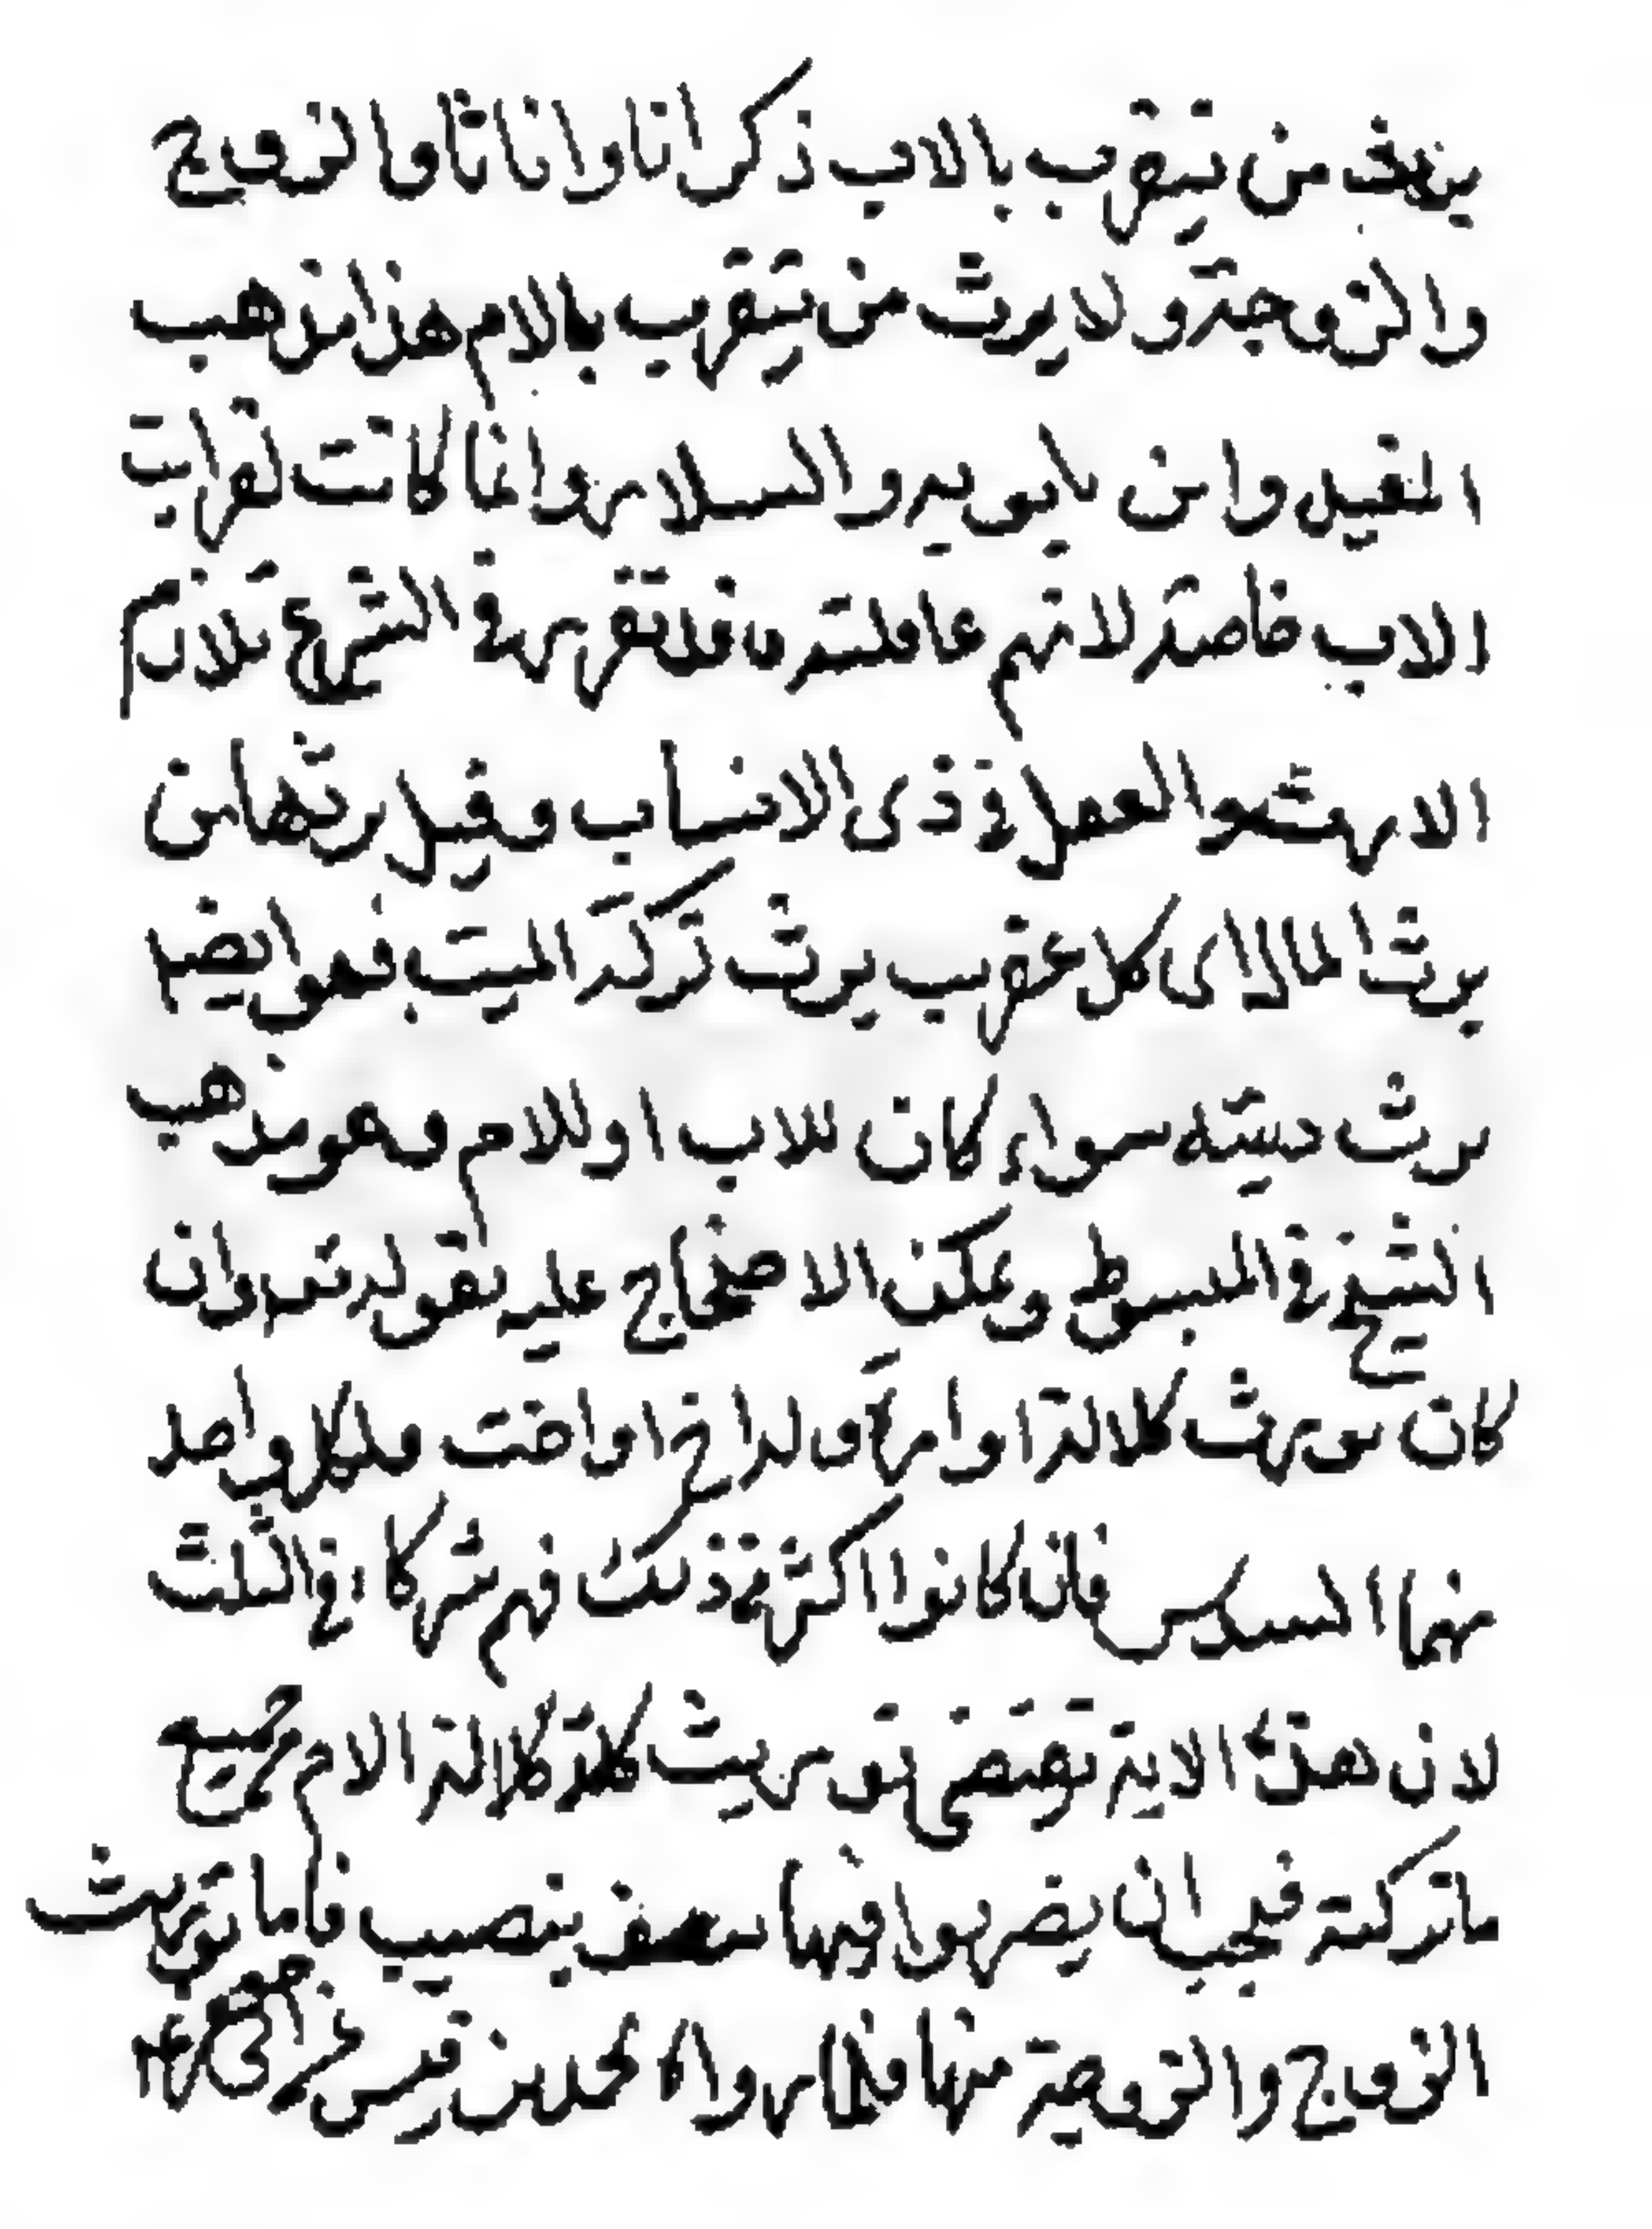 من يتقرب بالاب ذكرانا واناثا والزوج
والزوجة ولا يرث من يتقرب بالام هذا مذهب
المفيد وابن بابويه والسلار وانما كانت لقرابت
الاب خاصة لانهم عاقلته وقد تقرر في الشرع تلازم
الارث والعقل في ذى الانساب وقيل يرثها من
يرث المال اى كل قريب يرث تركة الميت فهو ايضا
يرث ديته سواء كان للاب او للام وهو مذهب
الشيخ في المبسوط ويمكن الاحتجاج عليه بقوله تع وان
كان يورث كلالة او امرأة وله اخ او اخت فلكل واحد
منهما السدس فان كانوا اكثر من ذلك فهم شركاء في الثلث
لان هذه الاية تقتضى توريث كلالة الام جميع
ما تركته فيجب ان يضربوا فيها بنصيب فاما توريث
الزوج والزوجة منها فلما رواه محمد بن قيس عن